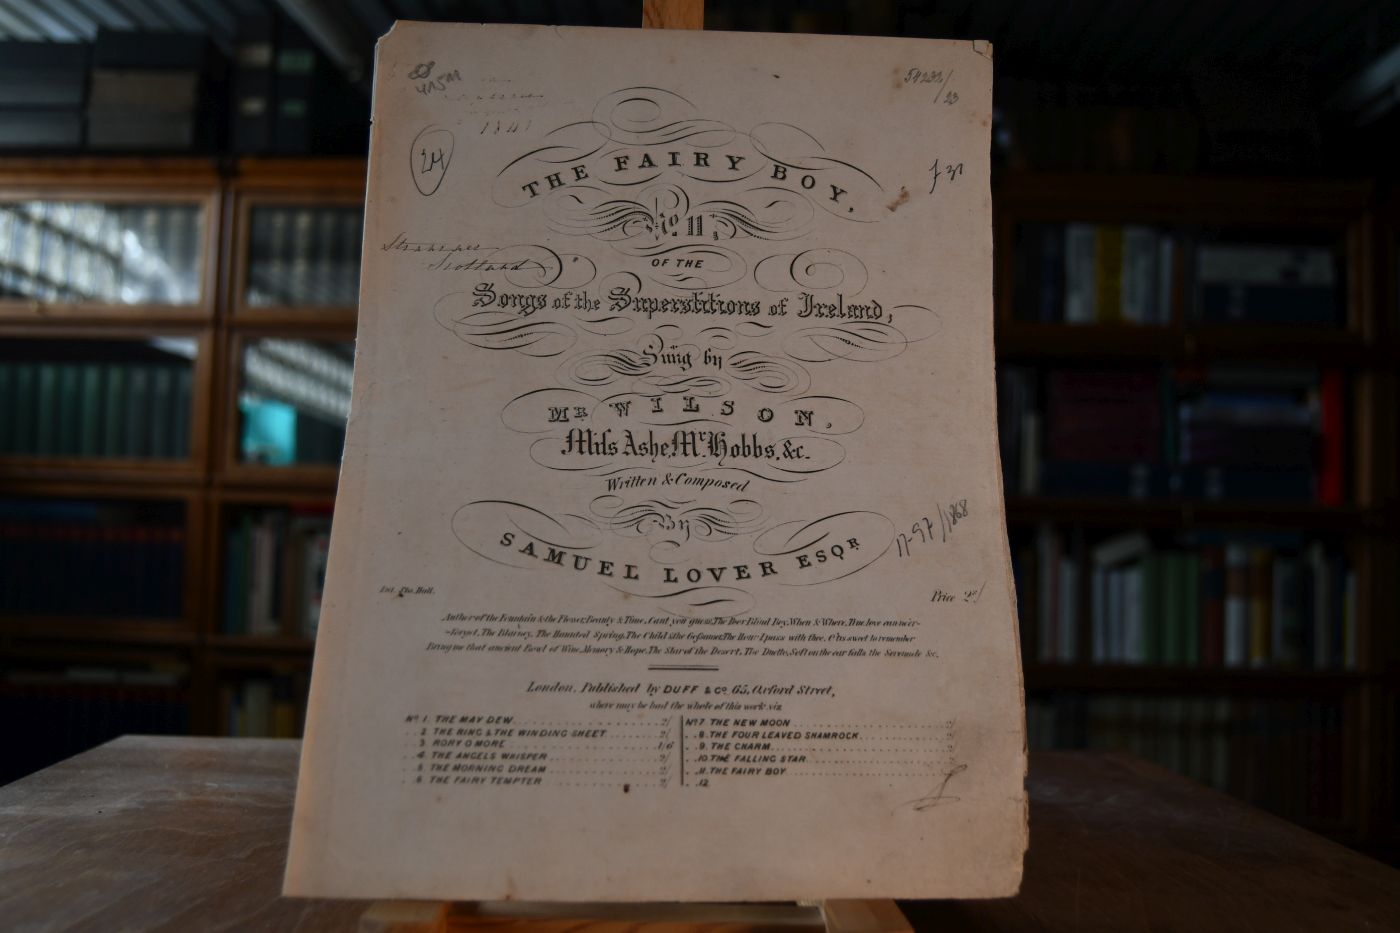 1841
54232/
23
24
THE FAIRY BOY,
No. 11,
OF THE
Scotland
Songs of the Superstitions of Ireland,
Sung by
MR WILSON,
Miss Ashe, Mr. Hobbs, &c.
Written & Composed
By
SAMUEL LOVER ESQR
Ent. Sta. Hall.
Price 2s/
Author of the Fountain & the Flower, Beauty & Time, Cant you guess, The Poor Blind Boy, When & Where, True love can neer-
-Forget, The Blarney, The Haunted Spring, The Child & the Gossamer, The Hour I pass with thee, O tis sweet to remember
Bring me that ancient Bowl of Wine, Memory & Hope, The Star of the Desert, The Duetto, Soft on the ear falls the Serenade &c.
London, Published by DUFF & Co. 65, Oxford Street,
where may be had the whole of this work viz
No 1. THE MAY DEW 2/
2. THE RING & THE WINDING SHEET 2/
3. RORY O MORE 1/6
4. THE ANGELS WHISPER 2/
5. THE MORNING DREAM 2/
6. THE FAIRY TEMPTER 2/
No 7. THE NEW MOON 2/
8. THE FOUR LEAVED SHAMROCK 2/
9. THE CHARM 2/
10. THE FALLING STAR 2/
11. THE FAIRY BOY
12.